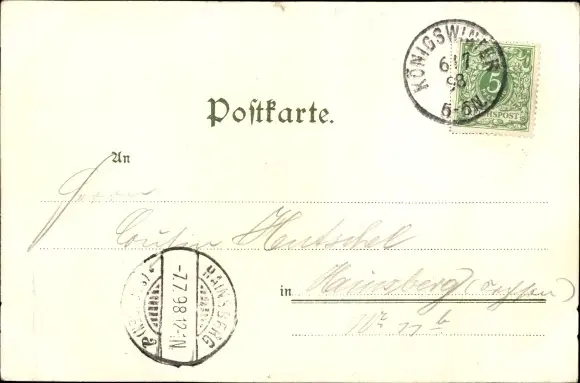 KÖNIGSWINTER
6 7
98
5-6N.
5
REICHSPOST
Postkarte.
An
Herrn
Hentschel
in Hainsberg (Sachsen)
HAINSBERG
-7.7.98.12-1N.
No 77 b